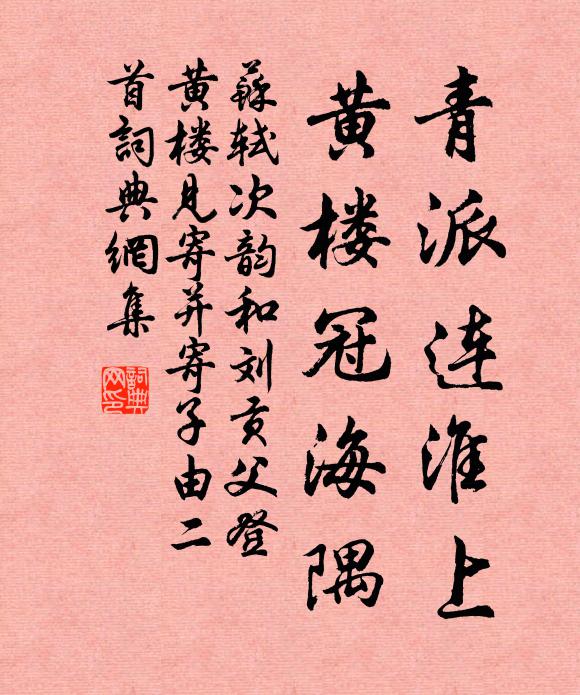 青派连淮上
黄楼冠海隅
蘇轼次韵和刘贡父登
黄楼见寄并寄子由二
首詞典網集
詞典網印